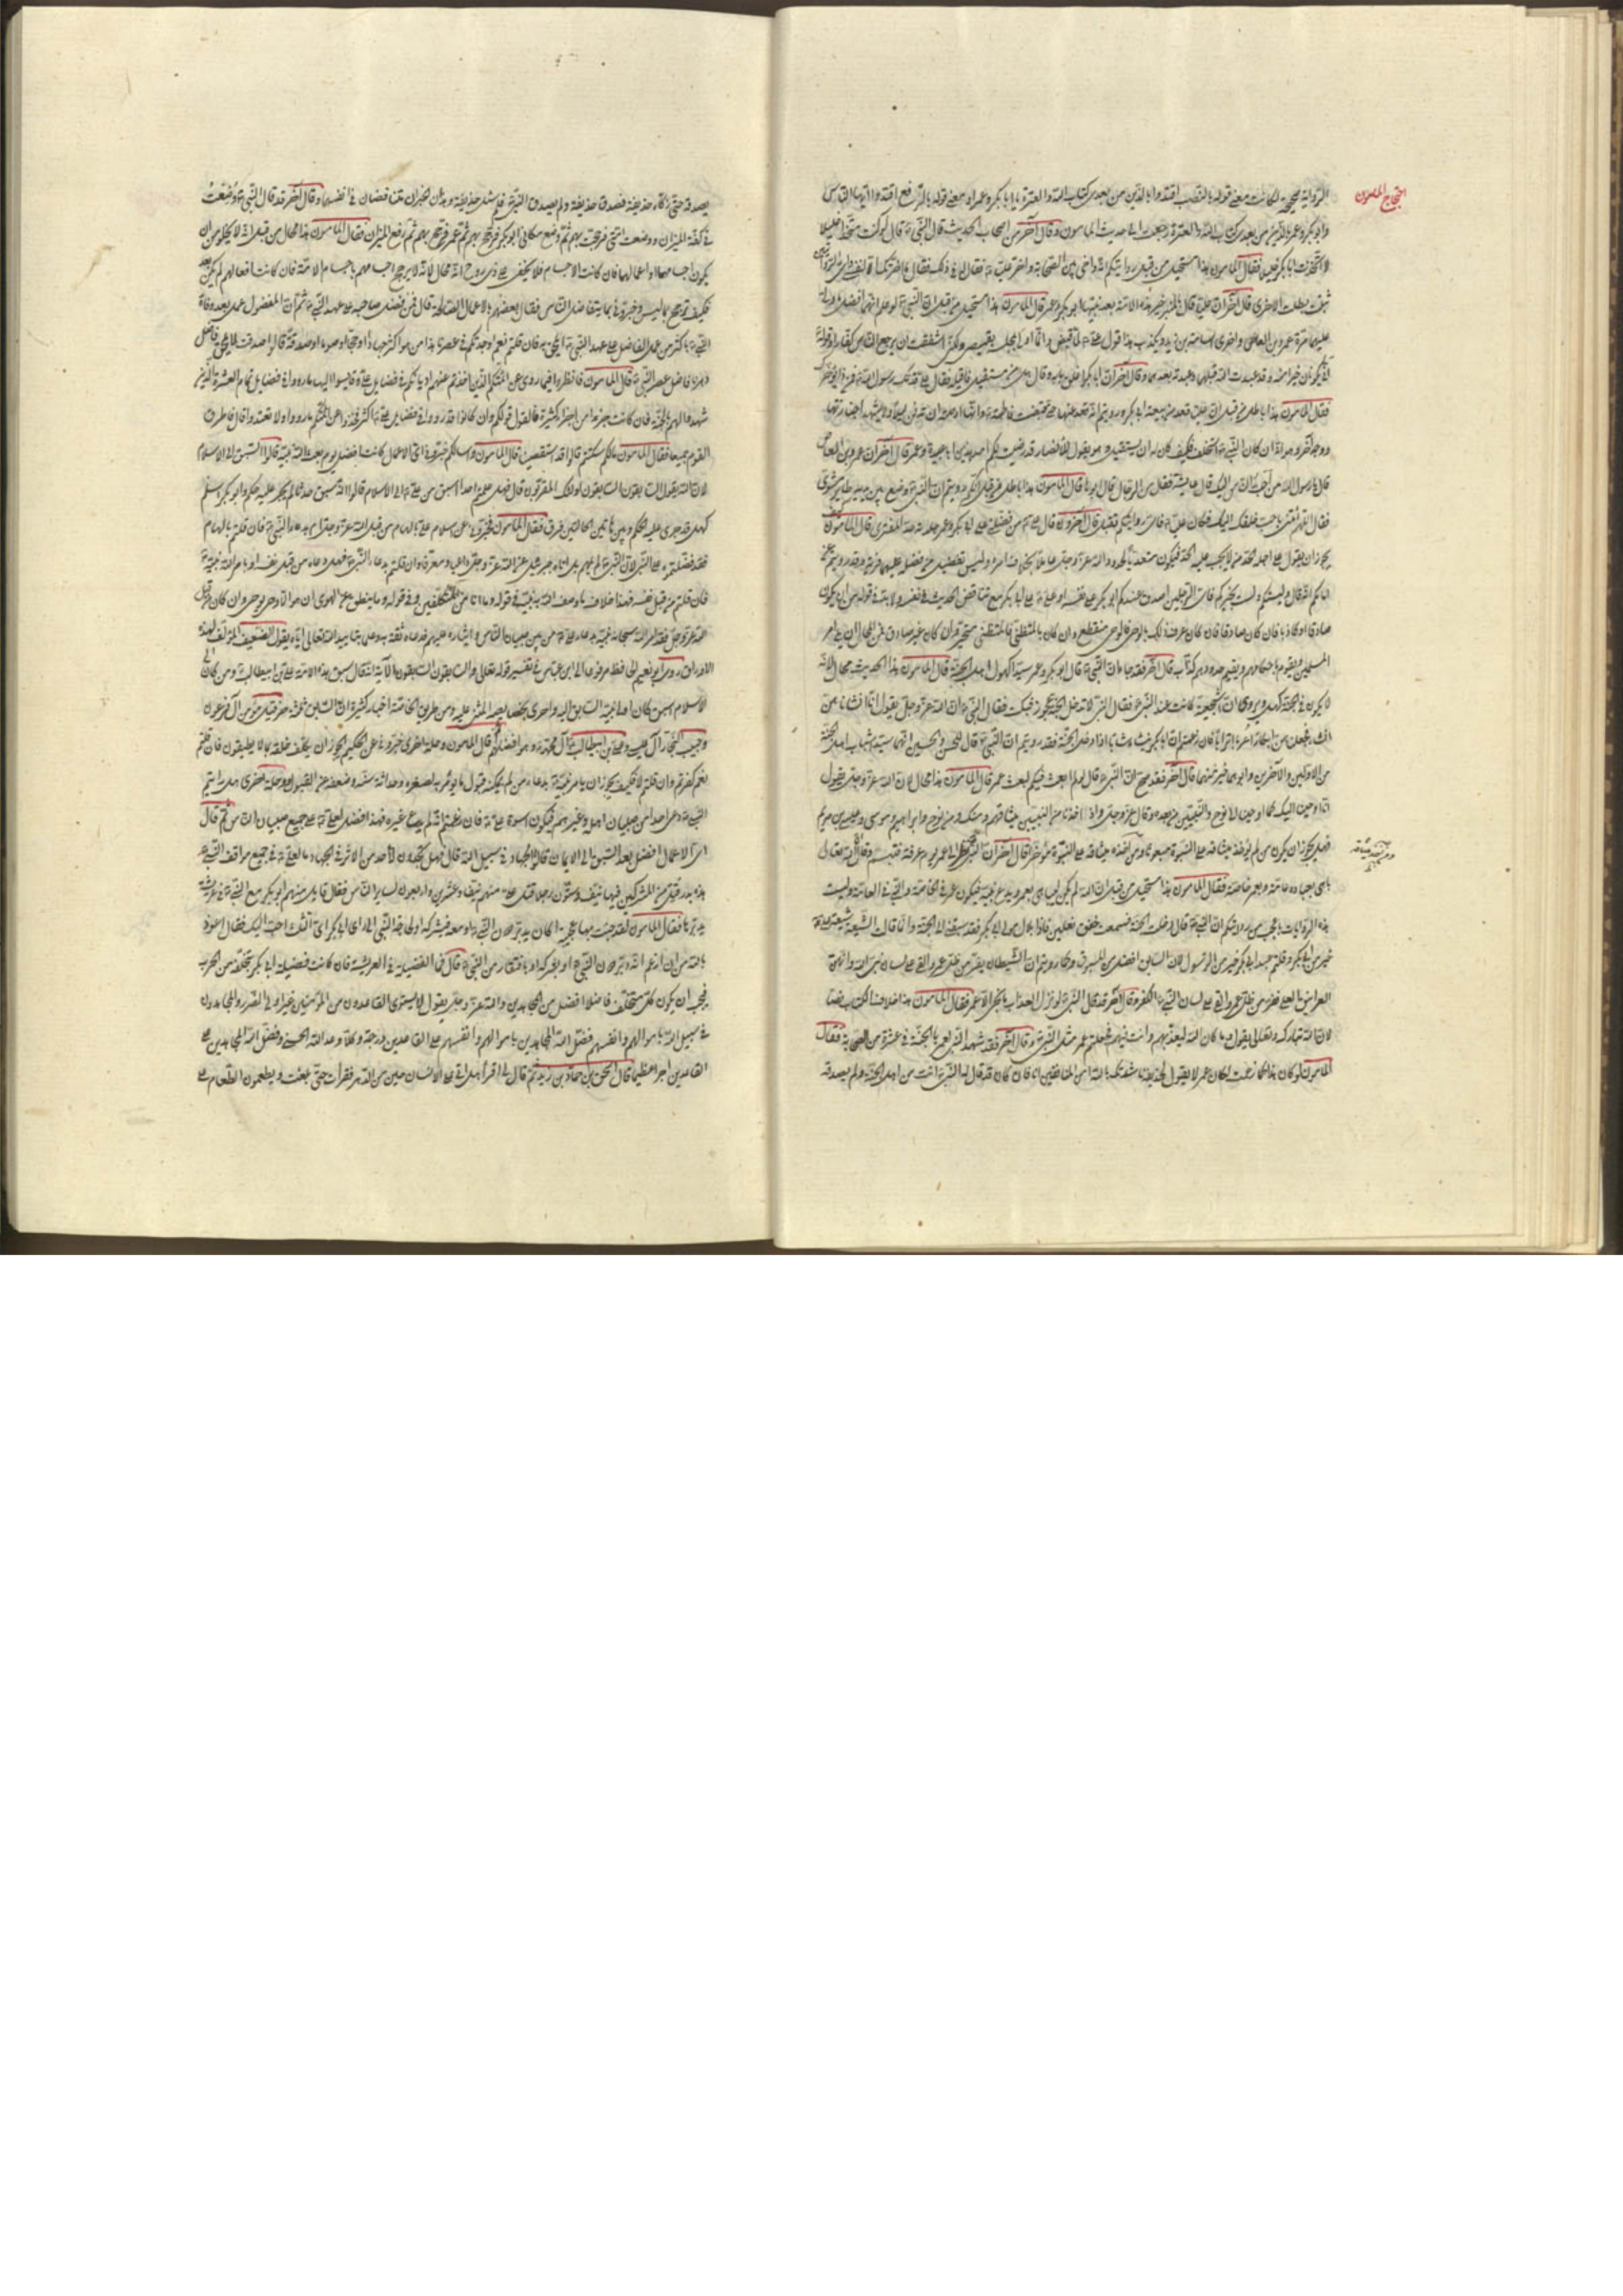 احتجاج المامون
الرواية صحيحة لكانت معنى قوله بالنصب اقتدوا بالذين من بعدى كتاب الله والعترة يا ابا بكر وعمر او معنى قوله بالرفع اقتدوا ايها الناس
وابو بكر وعمر بالذين من بعدى كتاب الله والعترة رجعت الى حديث المامون وقال آخر من اصحاب الحديث قال النبى لو كنت متخذا خليلا
لاتخذت ابا بكر خليلا فقال المامون هذا مستحيل من قبل روايتكم انه واخى بين الصحابة واخر عليا فقال له فى ذلك فقال ما اخرتك الا لنفسى فاى الروايتين
ثبتت بطلت الاخرى قال آخر ان عليا قال على المنبر خير هذه الامة بعد نبيها ابو بكر وعمر قال المامون هذا مستحيل من قبل ان النبى لو علم انهما افضل ما ولى
عليهما مرة عمرو بن العاص واخرى اسامة بن زيد ويكذب هذا قول على لما قبض وانا اولى بمجلسه بقميصى ولكنى اشفقت ان يرجع الناس كفارا وقوله
انى يكونان خيرا منى وقد عبدت الله قبلهما وعبدته بعدهما وقال آخر ان ابا بكر اغلق بابه وقال هل من مستقيل فاقيله فقال على قدمك رسول الله فمن ذا يؤخرك
فقال المامون هذا باطل من قبل ان عليا قعد عن بيعة ابى بكر ورويتم انه قعد عنها حتى قبضت فاطمة وانها اوصت ان تدفن ليلا ولا يشهدا جنازتها
ووجه آخر وهو انه ان كان النبى استخلفه فكيف كان له ان يستقيل وهو يقول للانصار قد رضيت لكم احد هذين ابا عبيدة وعمر قال آخر ان عمرو بن العاص
قال يا رسول الله من احب الناس اليك قال عايشة فقال من الرجال قال ابوها قال المامون هذا باطل من قبل انكم رويتم ان النبى وضع بين يديه طاير مشوى
فقال اللهم ائتنى باحب خلقك اليك فكان عليا فاى روايتكم تقبل قال آخرون قال على من فضلنى على ابى بكر وعمر جلدته حد المفترى قال المامون كيف
يجوز ان يقول على اجلد الحد من لا يجب عليه الحد فيكون متعديا لحدود الله عز وجل عاملا بخلاف امره وليس تفضيل من فضله عليهما فرية وقد رويتم عن
امامكم انه قال وليتكم ولست بخيركم فاى الرجلين اصدق عندكم ابو بكر على نفسه او على على ابى بكر مع تناقض الحديث فى نفسه ولا بد فى قوله من ان يكون
صادقا او كاذبا فان كان صادقا فان كان عرف ذلك بالوحى فالوحى منقطع وان كان بالتظنى فالمتظنى متحير وان كان غير صادق فمن المحال ان يلى امر
المسلمين ويقوم باحكامهم ويقيم حدودهم كذاب قال آخر فقد جاء ان النبى قال ابو بكر وعمر سيدا كهول اهل الجنة قال المامون هذا الحديث محال لانه
لا يكون فى الجنة كهل ويروى ان اشجعية كانت عند النبى فقال النبى لا تدخل الجنة عجوز فبكت فقال النبى ان الله عز وجل يقول انا انشاناهن
انشاء فجعلناهن ابكارا عربا اترابا فان زعمتم ان ابا بكر ينشأ شابا اذا دخل الجنة فقد رويتم ان النبى قال للحسن والحسين انهما سيدا شباب اهل الجنة
من الاولين والآخرين وابوهما خير منهما قال آخر فقد صح ان النبى قال لو لم ابعث فيكم لبعث عمر قال المامون هذا محال لان الله عز وجل يقول
انا اوحينا اليك كما اوحينا الى نوح والنبيين من بعده وقال عز وجل واذ اخذنا من النبيين ميثاقهم ومنك ومن نوح وابراهيم وموسى وعيسى بن مريم
فهل يجوز ان يكون من لم يؤخذ ميثاقه على النبوة مبعوثا ومن اخذ ميثاقه على النبوة مؤخرا قال آخر ان النبى نظر الى عمر يوم عرفة فتبسم وقال ان الله تعالى
باهى بعباده عامة وبعمر خاصة فقال المامون هذا مستحيل من قبل ان الله لم يكن ليباهى بعمر ويدع نبيه فيكون عمر فى الخاصة والنبى فى العامة وليست
هذه الرواية باعجب من روايتكم ان النبى قال دخلت الجنة فسمعت خفق نعلين فاذا بلال مولى ابى بكر فقد سبقنى الى الجنة وانما قالت الشيعة على
خير من ابى بكر وقلتم عبد ابى بكر خير من الرسول لان السابق افضل من المسبوق وكما رويتم ان الشيطان يفر من ظل عمر والقى على لسان نبى الله وانهن
الغرانيق العلى ففر من ظل عمر والقى على لسان النبى الكفر وقال آخر قد قال النبى لو نزل العذاب ما نجا الا عمر فقال المامون هذا خلاف الكتاب نصا
لان الله تبارك وتعالى يقول وما كان الله ليعذبهم وانت فيهم فجعلتم عمر مثل النبى وقال آخر فقد شهد النبى لعمر بالجنة فى عشرة من الصحابة فقال
المامون لو كان هذا كما زعمت لكان عمر لا يقول لحذيفة نشدتك بالله امن المنافقين انا فان كان قد قال له النبى انت من اهل الجنة ولم يصدقه
يصدقه حتى زكاه حذيفة فصدق حذيفة ولم يصدق النبى فهذان الخبران متناقضان فى انفسهما وقال آخر قد قال النبى وضعت
فى كفة الميزان ووضعت امتى فرجحت بهم ثم وضع مكانى ابو بكر فرجح بهم ثم عمر فرجح بهم ثم رفع الميزان فقال المامون هذا محال من قبل انه لا يخلو من ان
يكون اجسامهما او اعمالهما فان كانت الاجسام فلا يخفى على ذى روح انه محال لانه لا يرجح اجسامهم باجسام الامة فان كانت افعالهم لم تكن بعد
فكيف ترجح بما ليس وخبرونى بما يتفاضل الناس فقال بعضهم بالاعمال الصالحة قال فمن فضل صاحبه على عهد النبى ثم ان المفضول عمل بعد وفاة
النبى باكثر من عمل الفاضل على عهد النبى ايلحق به فان قلتم نعم اوجدتكم فى عصرنا هذا من هو اكثر جهادا وحجا وصوما وصدقة قالوا صدقت لا يلحق فاضل
دهرنا فاضل عصر النبى قال المامون فانظروا فيما روى عن ائمتكم الذين اخذتم عنهم اديانكم فى فضايل على وقايسوا اليها ما رووا فى فضايل تمام العشرة الذين
شهدوا لهم بالجنة فان كانت جزءا من اجزاء كثيرة فالقول قولكم وان كانوا قد رووا فى فضايل على اكثر فخذوا عن ائمتكم ما رووا ولا تعدوه قال فاطرق
القوم جميعا فقال المامون ما لكم سكتم قالوا قد استقصينا قال المامون فاسالكم خبرونى اى الاعمال كانت افضل يوم بعث الله نبيه قالوا السبق الى الاسلام
لان الله يقول السابقون السابقون اولئك المقربون قال فهل علمتم احدا اسبق من على الى الاسلام قالوا انه سبق حدثا لم يجر عليه حكم وابو بكر اسلم
كهلا قد جرى عليه الحكم وبين هاتين الحالتين فرق فقال المامون فخبرونى عن اسلام على بالهام من قبل الله عز وجل ام بدعاء النبى فان قلتم بالهام
فقد فضلتموه على النبى لان النبى لم يلهم بل اتاه جبرئيل عن الله عز وجل داعيا ومعرفا وان قلتم بدعاء النبى فهل دعاه من قبل نفسه او بامر الله
فان قلتم من قبل نفسه فهذا خلاف ما وصف الله به نبيه فى قوله وما انا من المتكلفين وفى قوله وما ينطق عن الهوى ان هو الا وحى يوحى وان كان من قبل
الله عز وجل فقد امر الله سبحانه نبيه بدعاء على من بين صبيان الناس وايثاره عليهم فدعاه ثقة به وعلما بتاييد الله تعالى اياه يقول الضعيف المؤلف لهذه
الاوراق روى ابو نعيم الحافظ مرفوعا الى ابن عباس فى تفسير قوله تعالى والسابقون السابقون الآية انه قال سبق هذه الامة على بن ابيطالب ومن كان الى
الاسلام اسبق كان اولى
وحبيب النجار آل يس وعلى بن ابيطالب آل محمد وهو افضلهم قال المامون وخلة اخرى خبرونى عن الحكيم هل يجوز ان يكلف خلقه ما لا يطيقون فان قلتم
نعم كفرتم وان قلتم لا فكيف يجوز ان يامر نبيه بدعاء من لم يمكنه قبول ما يؤمر به لصغره وحداثة سنه وضعفه عن القبول وخلة اخرى هل رايتم
النبى دعى احدا من صبيان اهله وغيرهم فيكون اسوة على فان زعمتم انه لم يدع غيره فهذا فضل لعلى على جميع صبيان الناس ثم قال
اى الاعمال افضل بعد السبق الى الايمان قالوا الجهاد فى سبيل الله قال فهل تجدون لاحد من الاثر فى الجهاد ما لعلى فى جميع مواقف النبى
هذه بدر قتل من المشركين فيها نيف وستون رجلا قتل على منهم نيف وعشرين واربعون لساير الناس فقال قايل منهم ابو بكر مع النبى فى عريشه
يدبرها فقال المامون لقد جئت بها عجيبة اكان يدبر دون النبى او معه فيشركه او لحاجة النبى الى راى ابى بكر اى الثلث احب اليك فقال اعوذ
بالله من ان ازعم انه يدبر دون النبى او يشركه او بافتقار من النبى قال فما الفضيلة فى العريش فان كانت فضيلة ابى بكر بتخلفه من الحرب
فيجب ان يكون كل متخلف فاضلا افضل من المجاهدين والله عز وجل يقول لا يستوى القاعدون من المؤمنين غير اولى الضرر والمجاهدون
فى سبيل الله باموالهم وانفسهم فضل الله المجاهدين باموالهم وانفسهم على القاعدين درجة وكلا وعد الله الحسنى وفضل الله المجاهدين على
القاعدين اجرا عظيما قال اسحق بن حماد بن زيد ثم قال لى اقرأ هل اتى على الانسان حين من الدهر فقرأت حتى بلغت ويطعمون الطعام على